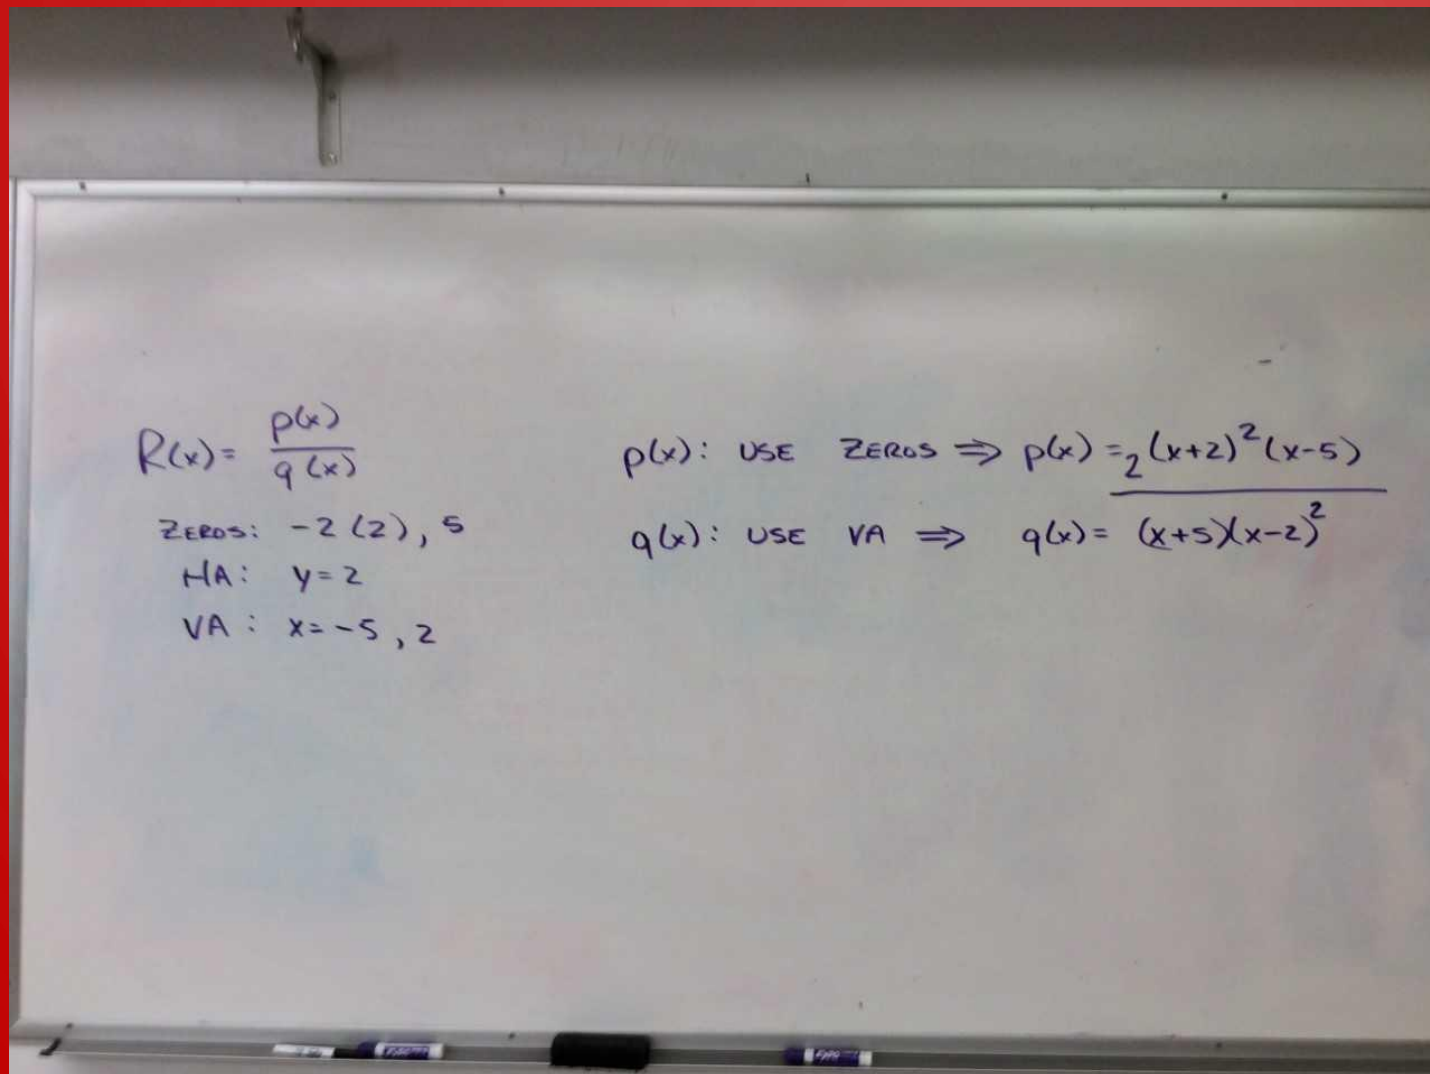 R(x) = p(x) / q(x)
ZEROS: -2 (2), 5
HA: y = 2
VA: x = -5, 2
p(x): USE ZEROS ⇒ p(x) = 2(x+2)²(x-5)
q(x): USE VA ⇒ q(x) = (x+5)(x-2)²
EXPO